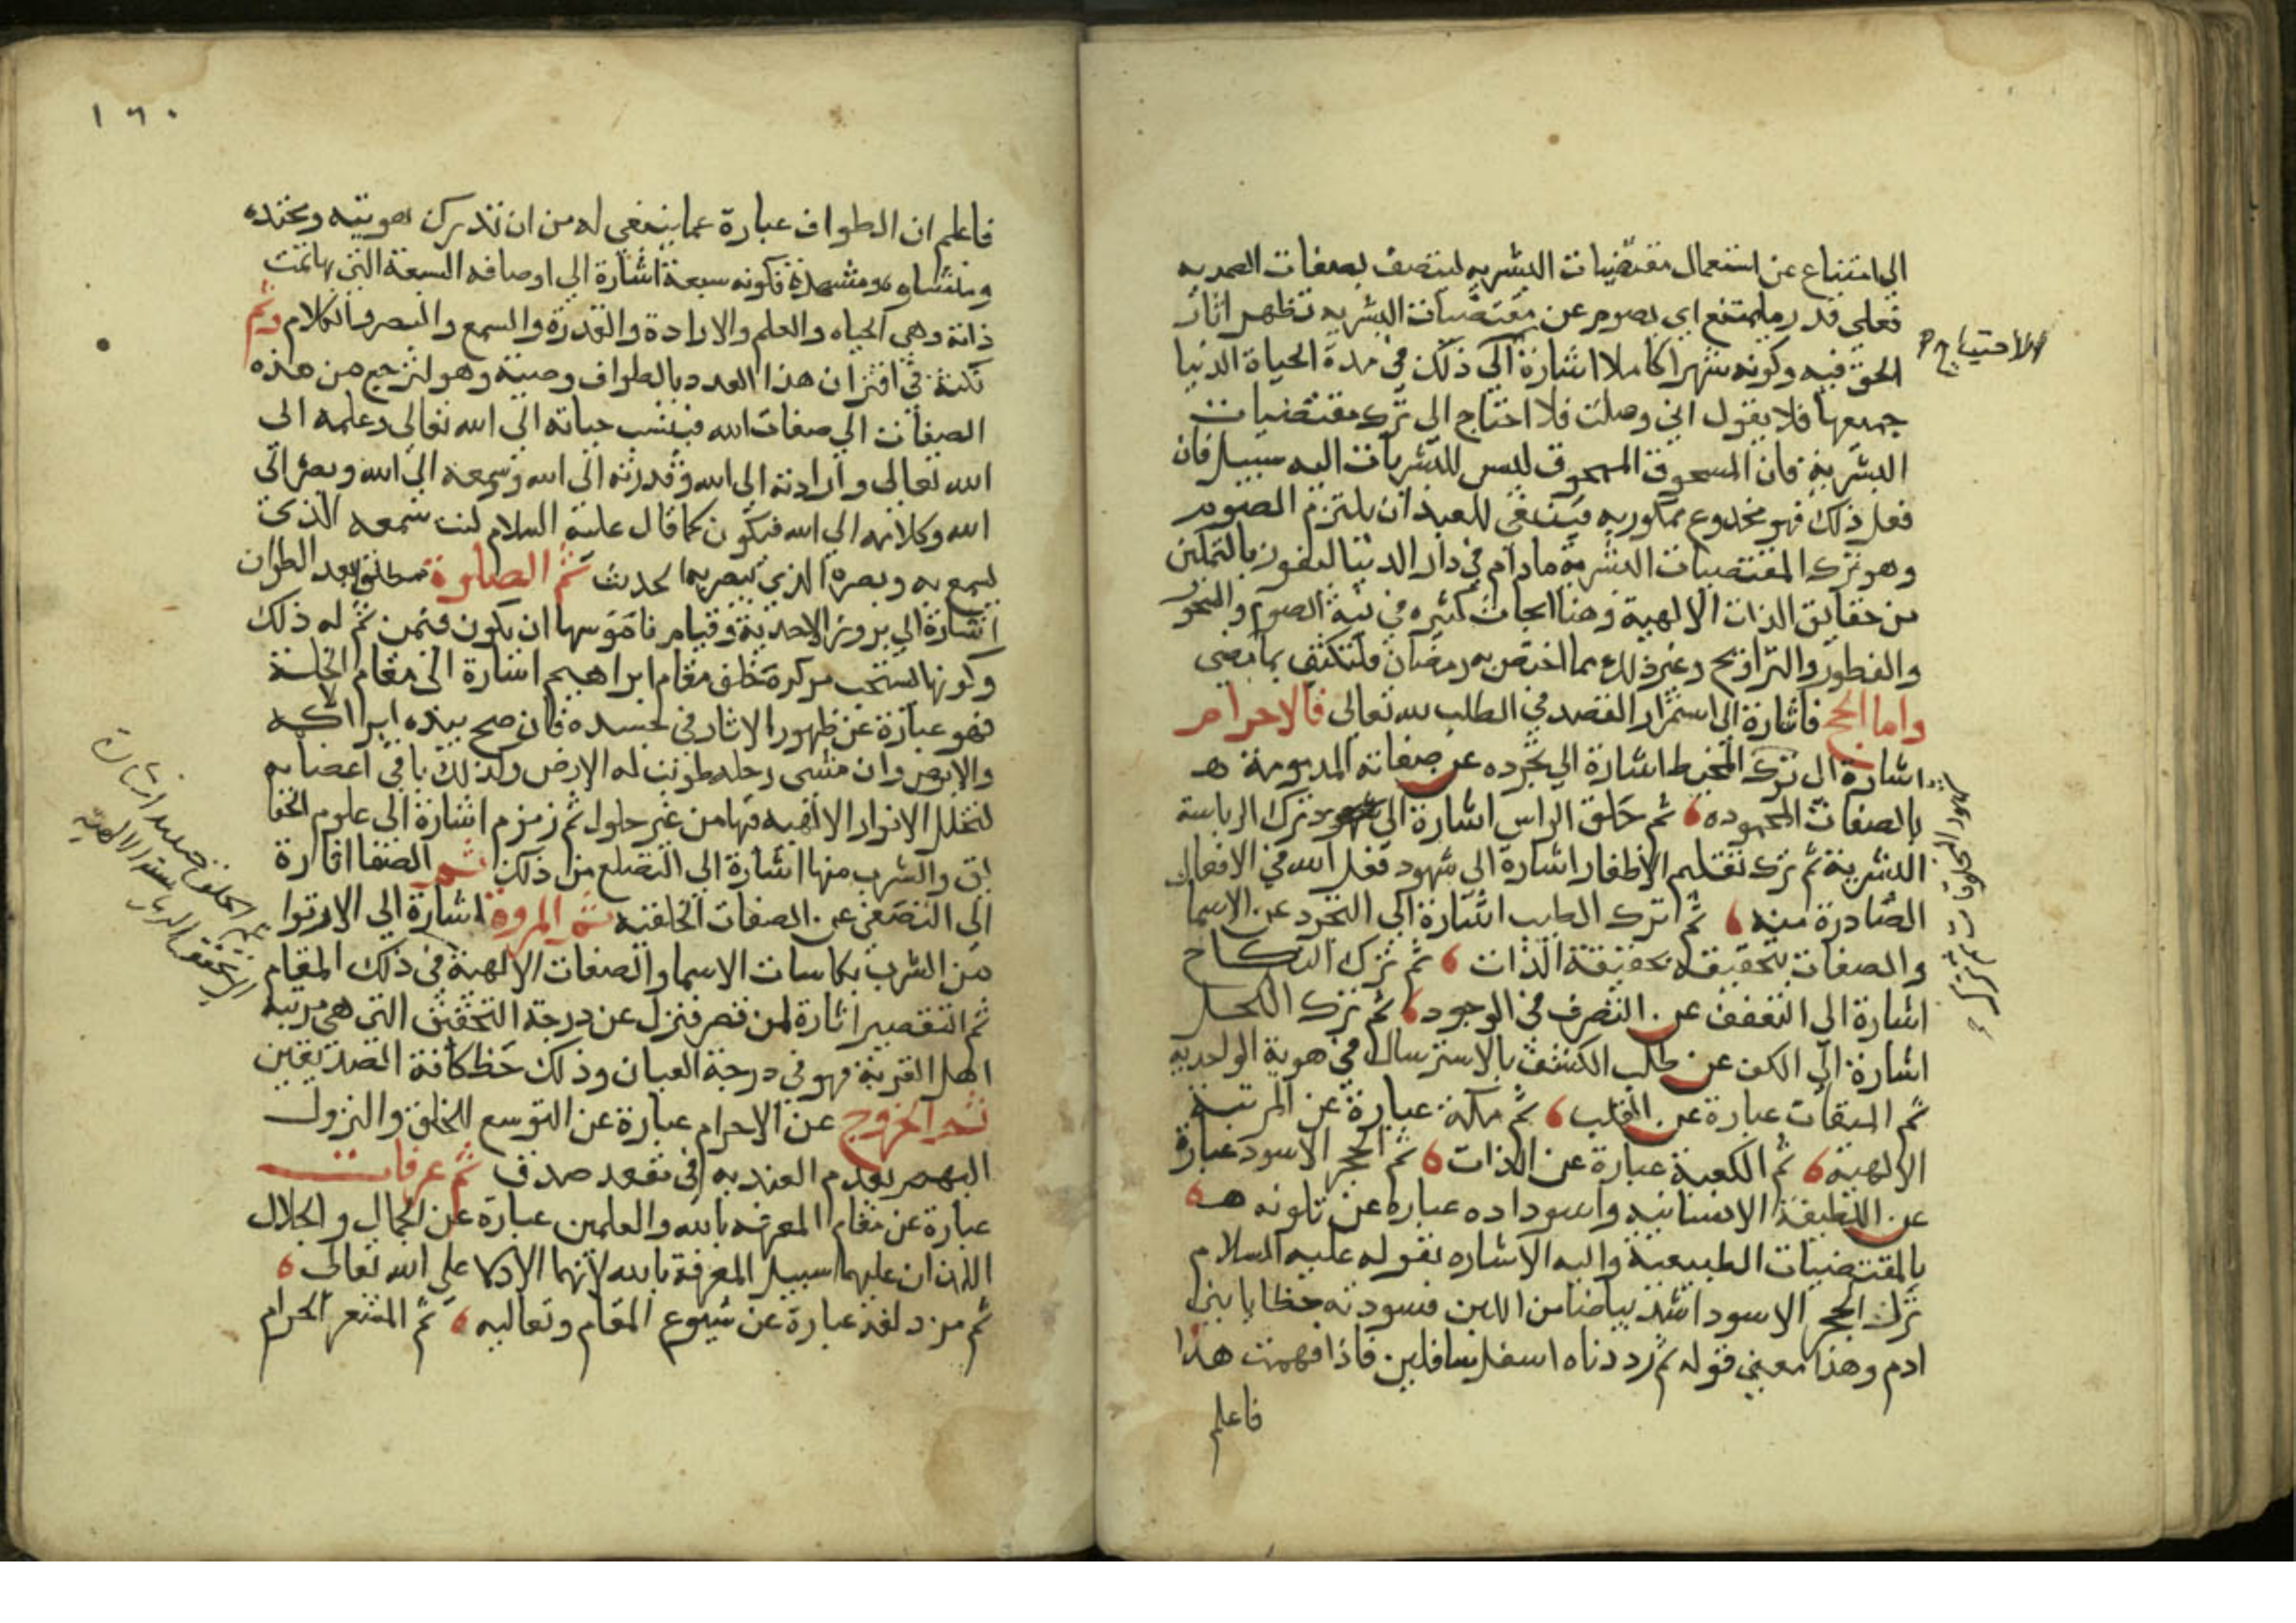 الى امتناع عن استعمال مقتضيات البشريه ليتصف بصفات الصمديه
فعلي قدر ما يمتنع اي يصوم عن مقتضيات البشريه تظهر اثار
الحق فيه وكونه شهرا كاملا اشارة الي ذلك في مدة الحياة الدنيا
جميعها فلا يقول اني وصلت فلا احتاج الى ترك مقتضيات
البشرية فان المسحوق الممحوق ليس للبشريات اليه سبيل فان
فعل ذلك فهو مخدوع ممكور به فينبغي للعبد ان يلتزم الصوم
وهو ترك المقتضيات البشرية مادام في دار الدنيا ليفوز بالتمكين
من حقايق الذات الالهية وهنا ابحاث كثيره في نية الصوم والسحور
والفطور والتراويح وغير ذلك مما اختص به رمضان فلنكتف بما مضى
واما الحج فاشارة الى استمرار القصد في الطلب لله تعالى فالاحرام
اشارة الى ترك المخيط اشارة الي تجرده عن صفاته المذمومة
بالصفات المحموده ثم حلق الراس اشارة الى ترك الرياسة
البشرية ثم ترك تقليم الاظفار اشارة الى شهود فعل الله في الافعال
الصادرة منه ثم ترك الطيب اشارة الي التجرد عن الاسما
والصفات لتحققه بحقيقة الذات ثم ترك النكاح
اشارة الى التعفف عن التصرف في الوجود ثم ترك الكحل
اشارة الي الكف عن طلب الكشف بالاسترسال في هوية الواحديه
ثم الميقات عبارة عن القلب ثم مكة عبارة عن المرتبة
الالهية ثم الكعبة عبارة عن الذات ثم الحجر الاسود عبارة
عن اللطيفة الانسانيه واسوداده عباره عن تلونه
بالمقتضيات الطبيعية واليه الاشاره بقوله عليه السلام
نزل الحجر الاسود اشد بياضا من اللبن فسودته خطايا بني
ادم وهذا معنى قوله ثم رددناه اسفل سافلين فاذا فهمت هذا
فاعلم
الاحتياج
١٦٠
فاعلم ان الطواف عبارة عما ينبغي له من ان تدرك هويته ومحتده
ومنشاه ومشهده فكونه سبعة اشارة الي اوصافه السبعة التي بها تمت
ذاته وهي الحياه والعلم والارادة والقدرة والسمع والبصر والكلام وثم
نكتة في اقتران هذا العدد بالطواف وهو ليرجع من هذه
الصفات الي صفات الله فينسب حياته الى الله تعالى وعلمه الى
الله تعالى وارادته الى الله وقدرته الى الله وسمعه الى الله وبصره الى
الله وكلامه الي الله فيكون كما قال عليه السلام كنت سمعه الذي
يسمع به وبصره الذي يبصر به الحديث ثم الصلوة مطلقا بعد الطواف
اشارة الي بروز الاحدية وقيام ناموسها ان يكون فيمن تم له ذلك
وكونها يستحب خلف مقام ابراهيم اشارة الى مقام الخلة
فهو عبارة عن ظهور الاثار في جسده فان مسح بيده ابرا الاكمه
والابرص وان مشى رجله طويت له الارض وكذلك باقي اعضايه
لتخلل الانوار الالهيه فيها من غير حلول ثم زمزم اشارة الى علوم الحقا
يق والشرب منها اشارة الى التضلع من ذلك ثم الصفا اشارة
الى التصفي عن الصفات الخلقيه ثم المروة اشارة الي الارتوا
من الشرب بكاسات الاسما والصفات الالهية في ذلك المقام
ثم التقصير اشارة لمن قصر فنزل عن درجة التحقيق التي هي مرتبة
اهل القربة فهو في درجة العيان وذلك حظ كافة الصديقين
ثم الخروج عن الاحرام عبارة عن التوسع للخلق والنزول
اليهم بعدم العنديه في مقعد صدق ثم عرفات
عبارة عن مقام المعرفة بالله والعلمين عبارة عن الجمال والجلال
اللذان عليهما سبيل المعرفة بالله لانهما الادلا على الله تعالى
ثم مزدلفة عبارة عن شيوع المقام وتعاليه ثم المشعر الحرام